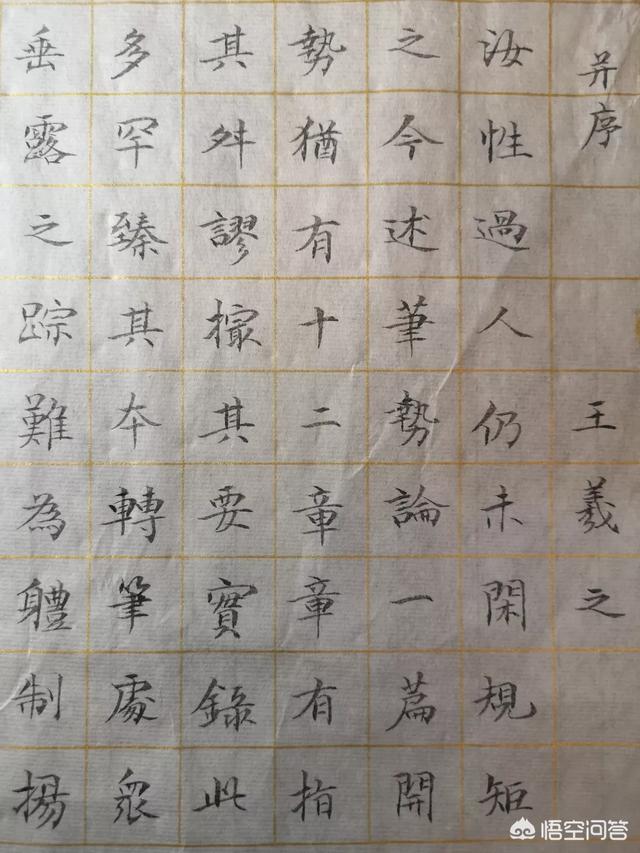 并序 王羲之
汝性過人仍未閑規矩
之今述筆勢論一篇開
勢猶有十二章章有指
其舛謬撮其要實錄此
多罕臻其夲轉筆處眾
垂露之踪難為軆制揚
悟空问答